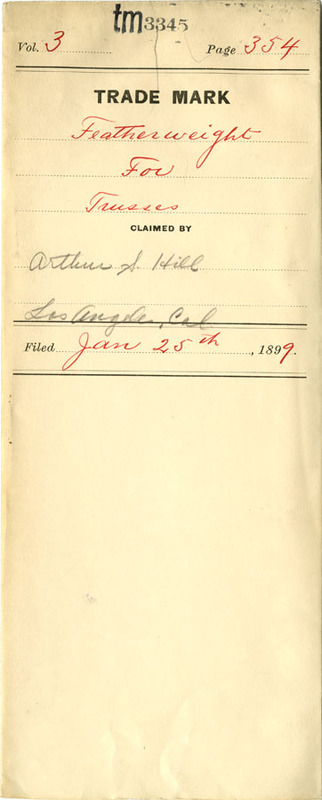 tm 3345
Vol. 3 Page 354
TRADE MARK
Featherweight
For
Trusses
CLAIMED BY
Arthur S. Hill
Los Angeles, Cal
Filed Jan 25th, 1899.